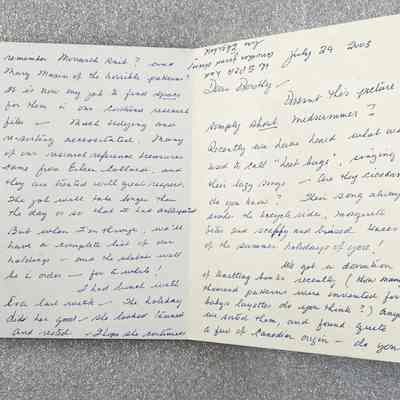 July 29 2003
Dear Dorothy -
Doesn't this picture
simply shout Midsummer?
Recently we have heard what we
used to call "heat bugs", singing
their lazy songs - are they cicadas
do you know? Their song always
evoke the bicycle ride, mosquito
bites and scraped and bruised knees
of the summer holidays of yore!
We got a donation
of knitting books recently (How many
thousand patterns were invented for
babys layettes do you think?) Anyway
we sorted them, and found quite
a few of Canadian origin - do you
remember Monarch Knit? and
Mary Maxim of the horrible patterns?
It is now my job to find space
for them in our costume research
files - Much sledging and
re-sorting necessitated. Many
of our research reference treasures
came from Eileen Collard, and
they are treated with great respect.
The job will take longer than
the day or so that I had anticipated
But when I'm through, we'll
have a complete list of our
holdings - and the shelves will
be in order - for a while!
I had lunch with
last week - The holiday
did her good - she looked tanned
and rested - I hope she continues